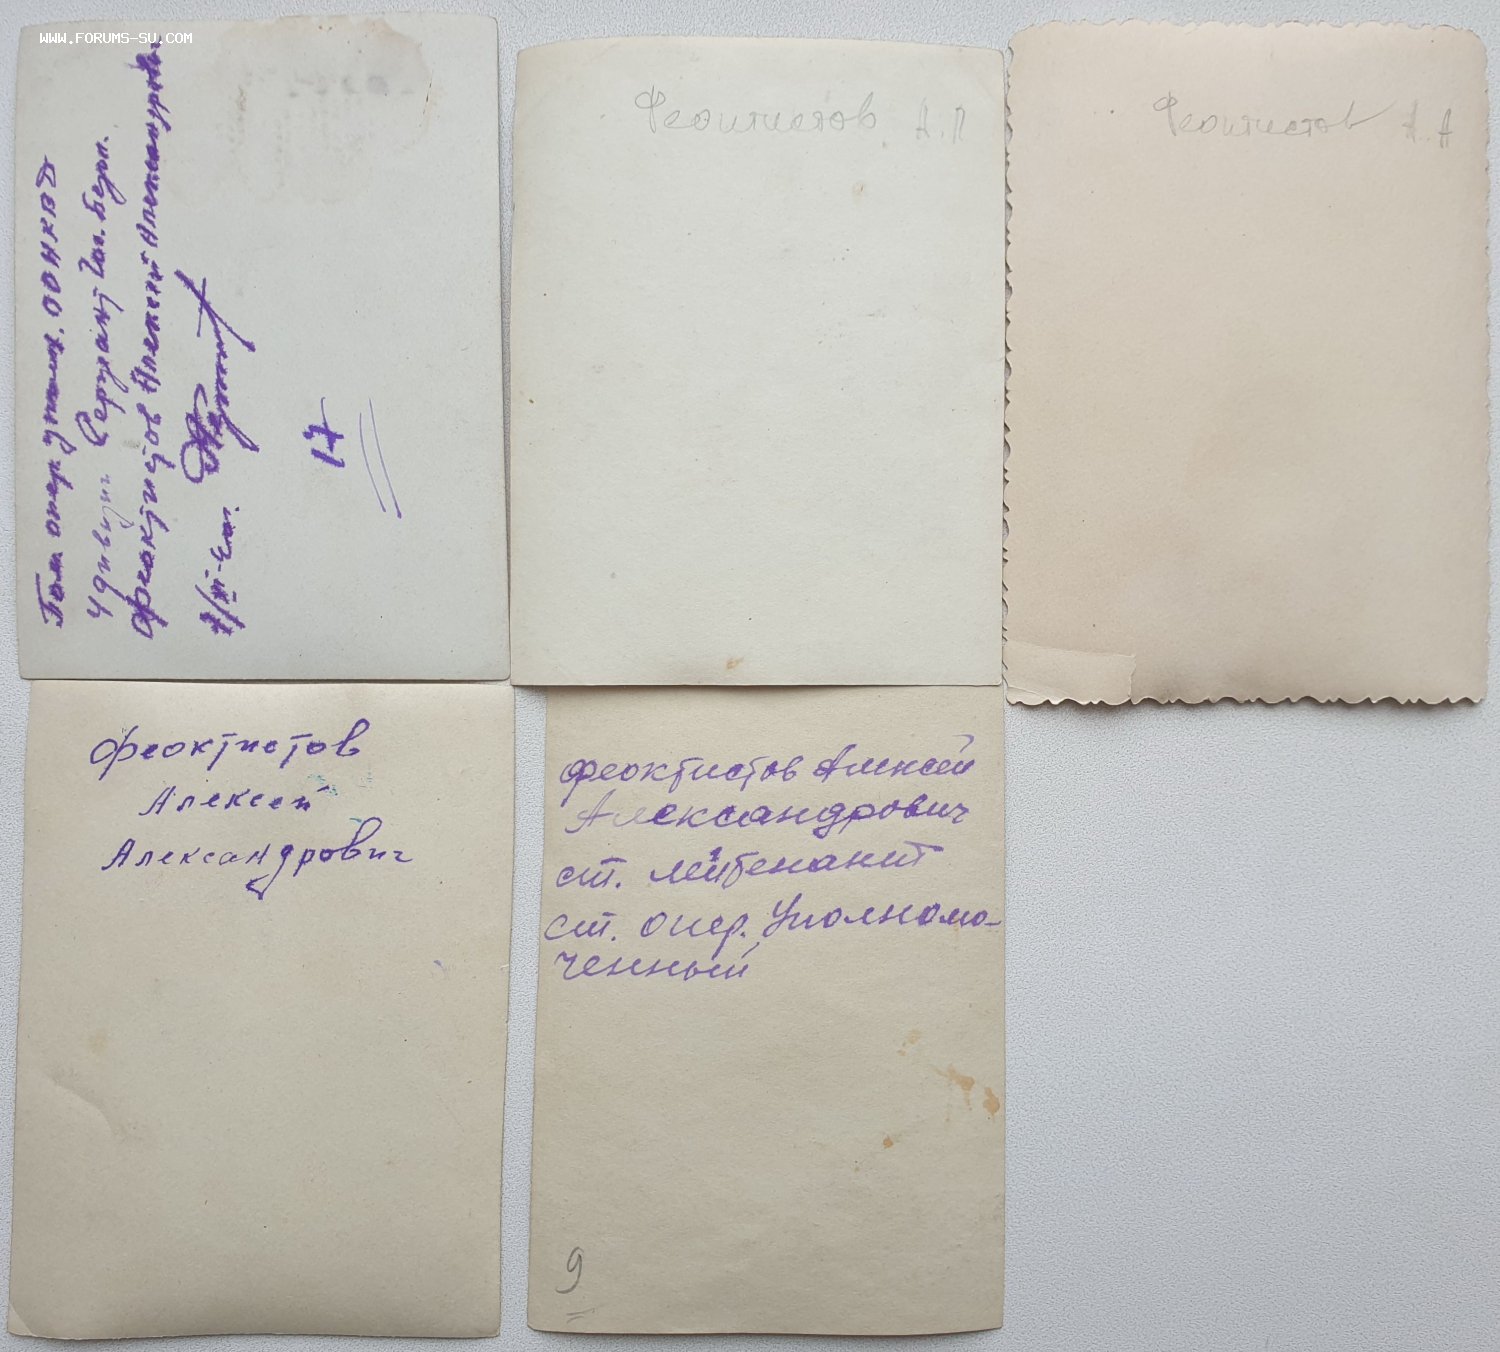 WWW.FORUMS-SU.COM
Пом. опер уполн. ОО НКВД
4 дивизии Сержант Гос. Безоп.
Феоктистов Алексей Александрович
17
Феоктистов А.А
Феоктистов А.А
Феоктистов
Алексей
Александрович
Феоктистов Алексей
Александрович
ст. лейтенант
ст. опер. Уполномо-
ченный
9